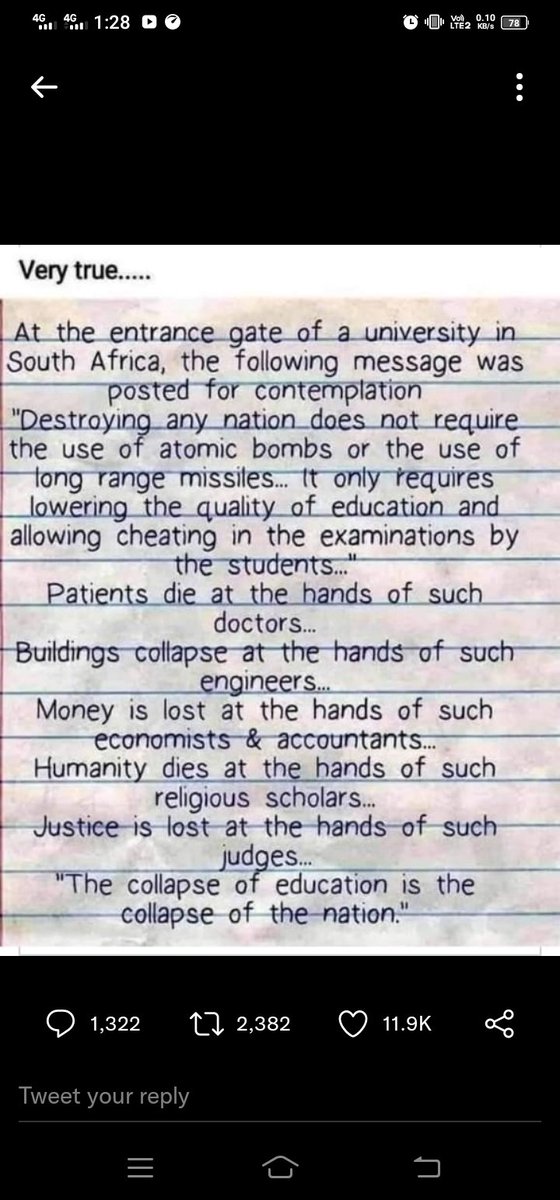 4G 4G 1:28 Vo)) LTE2 0.10 KB/s 78
Very true.....
At the entrance gate of a university in
South Africa, the following message was
posted for contemplation
"Destroying any nation does not require
the use of atomic bombs or the use of
long range missiles... It only requires
lowering the quality of education and
allowing cheating in the examinations by
the students..."
Patients die at the hands of such
doctors...
Buildings collapse at the hands of such
engineers...
Money is lost at the hands of such
economists & accountants...
Humanity dies at the hands of such
religious scholars...
Justice is lost at the hands of such
judges...
"The collapse of education is the
collapse of the nation."
1,322 2,382 11.9K
Tweet your reply